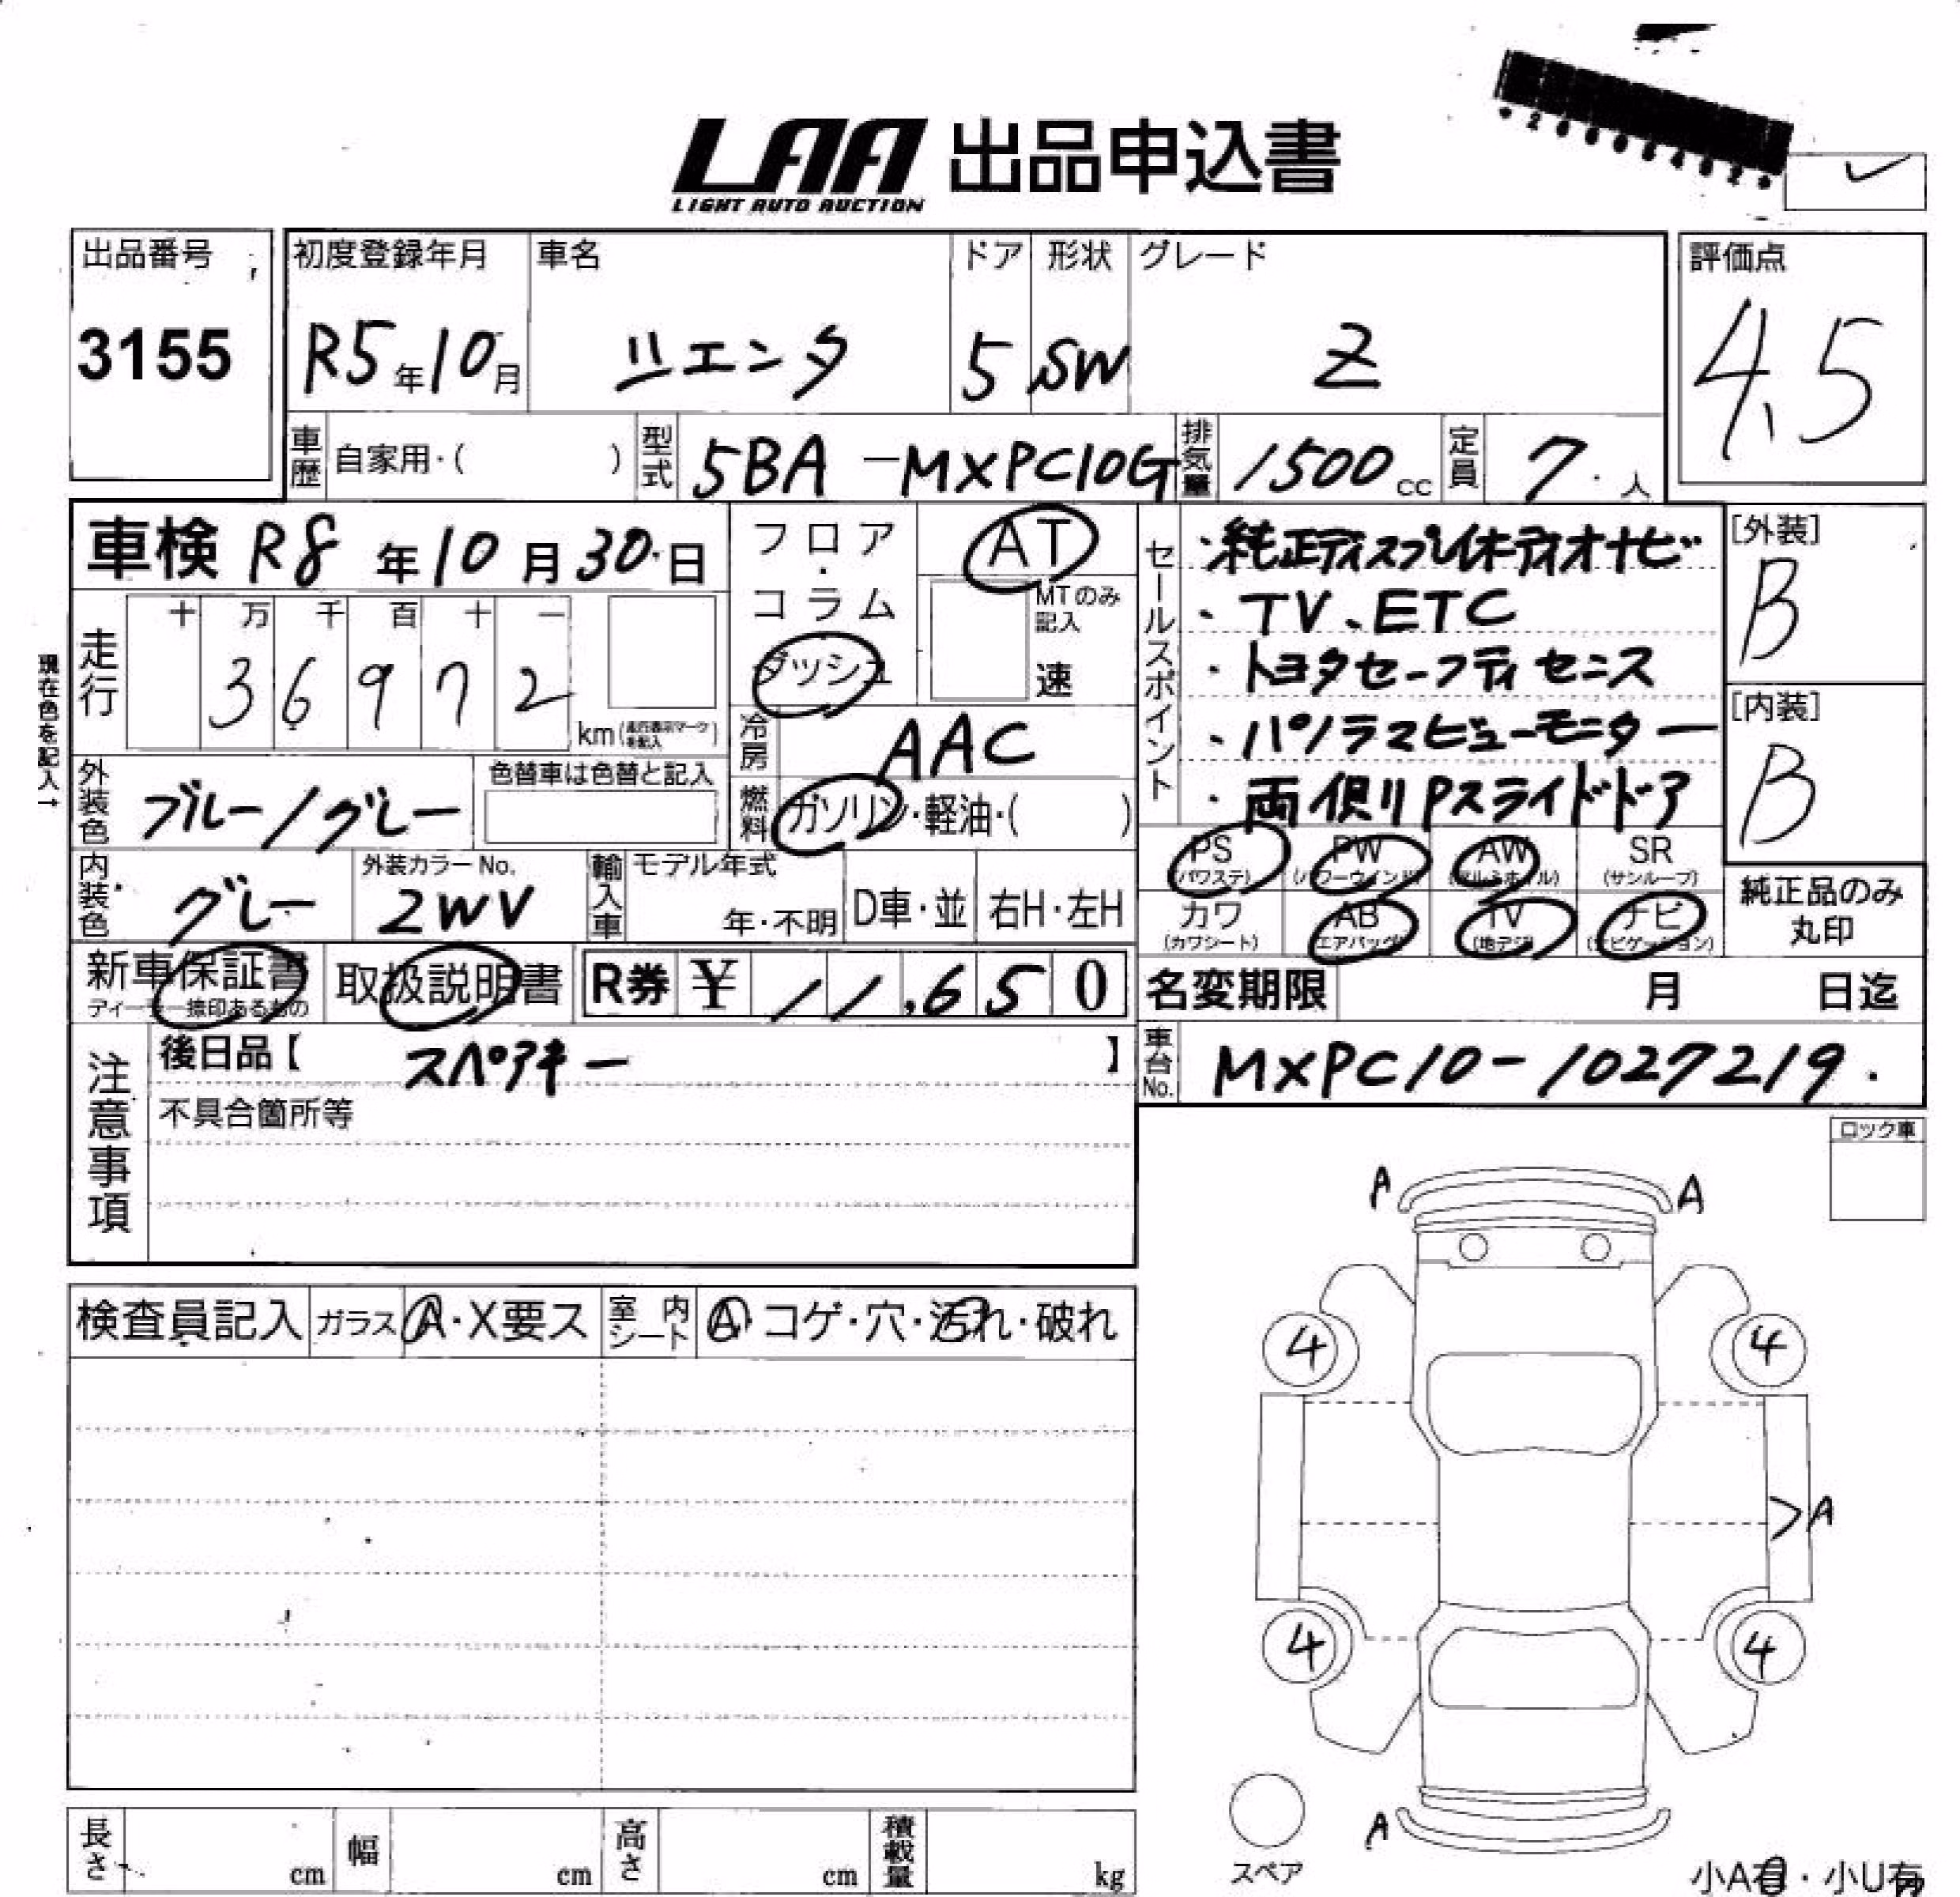 LAA 出品申込書
LIGHT AUTO AUCTION
出品番号 初度登録年月 車名 ドア 形状 グレード 評価点
3155 R5年10月 シエンタ 5 SW Z 4.5
車歴 自家用・( ) 型式 5BA-MXPC10G 排気量 1500cc 定員 7人
車検 R8年10月30日 フロア・コラム ダッシュ AT
MTのみ記入 速
走行 十 万 千 百 十 一
36972 km
現在色を記入→
冷房 AAC
外装色 ブルー/グレー 色替車は色替と記入 燃料 ガソリン・軽油・( )
内装色 グレー 外装カラーNo. 2WV 輸入車 モデル年式 年・不明 D車・並 右H・左H
セールスポイント
・純正ディスプレイオーディオナビ
・TV、ETC
・トヨタセーフティセンス
・パノラマビューモニター
・両側Pスライドドア
[外装] B
[内装] B
PS (パワステ) PW (パワーウインド) AW (アルミホイル) SR (サンルーフ)
カワ (カワシート) AB (エアバッグ) TV (地デジ) ナビ (ナビゲーション)
純正品のみ丸印
新車保証書 取扱説明書 R券 ¥ 11,650 名変期限 月 日迄
ディーラー捺印あるもの
注意事項 後日品【 スペアキー 】 車台No. MXPC10-1027219
不具合箇所等
ロック車
A A
検査員記入 ガラス A・X要ス 室内シート A コゲ・穴・汚れ・破れ
4 4
A
4 4
A
スペア
長さ cm 幅 cm 高さ cm 積載量 kg
小A有・小U有